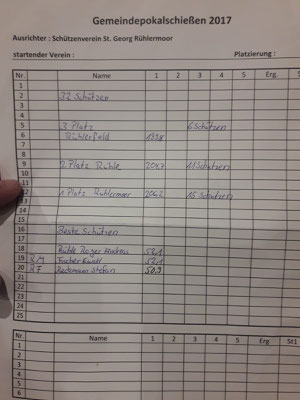 Gemeindepokalschießen 2017
Ausrichter : Schützenverein St. Georg Rühlermoor
startender Verein : Platzierung :
Nr. Name 1 2 3 4 5 Erg. St
1
2 32 Schützen
3
4
5 3 Platz 6 Schützen
6 Rühlerfeld 1998
7
8
9 2 Platz Rühle 2047 11 Schützen
10
12 1 Platz Rühlermoor 2062 15 Schützen
13
14
15
16 Beste Schützen
17
18 Rühle Roger Andreas 52,1
19 RM Fischer Ewald 52,1
20 RF Stefan 50,9
21
22
23
24
25
Nr. Name 1 2 3 4 5 Erg. St1
1
2